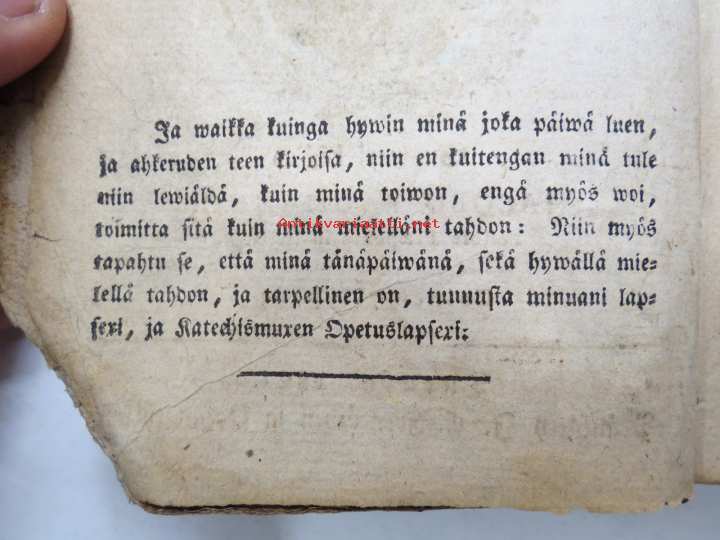 Ja waikka kuinga hywin minä joka päiwä luen,
ja ahkeruden teen kirjoisa, niin en kuitengan minä tule
niin lewiäldä, kuin minä toiwon, engä myös woi,
toimitta sitä kuin minä mielelläni tahdon: Niin myös
tapahtu se, että minä tänäpäiwänä, sekä hywällä mie-
lellä tahdon, ja tarpellinen on, tunnusta minuani lap-
sexi, ja Katechismuxen Opetuslapsexi:
Antikvariaatti.net